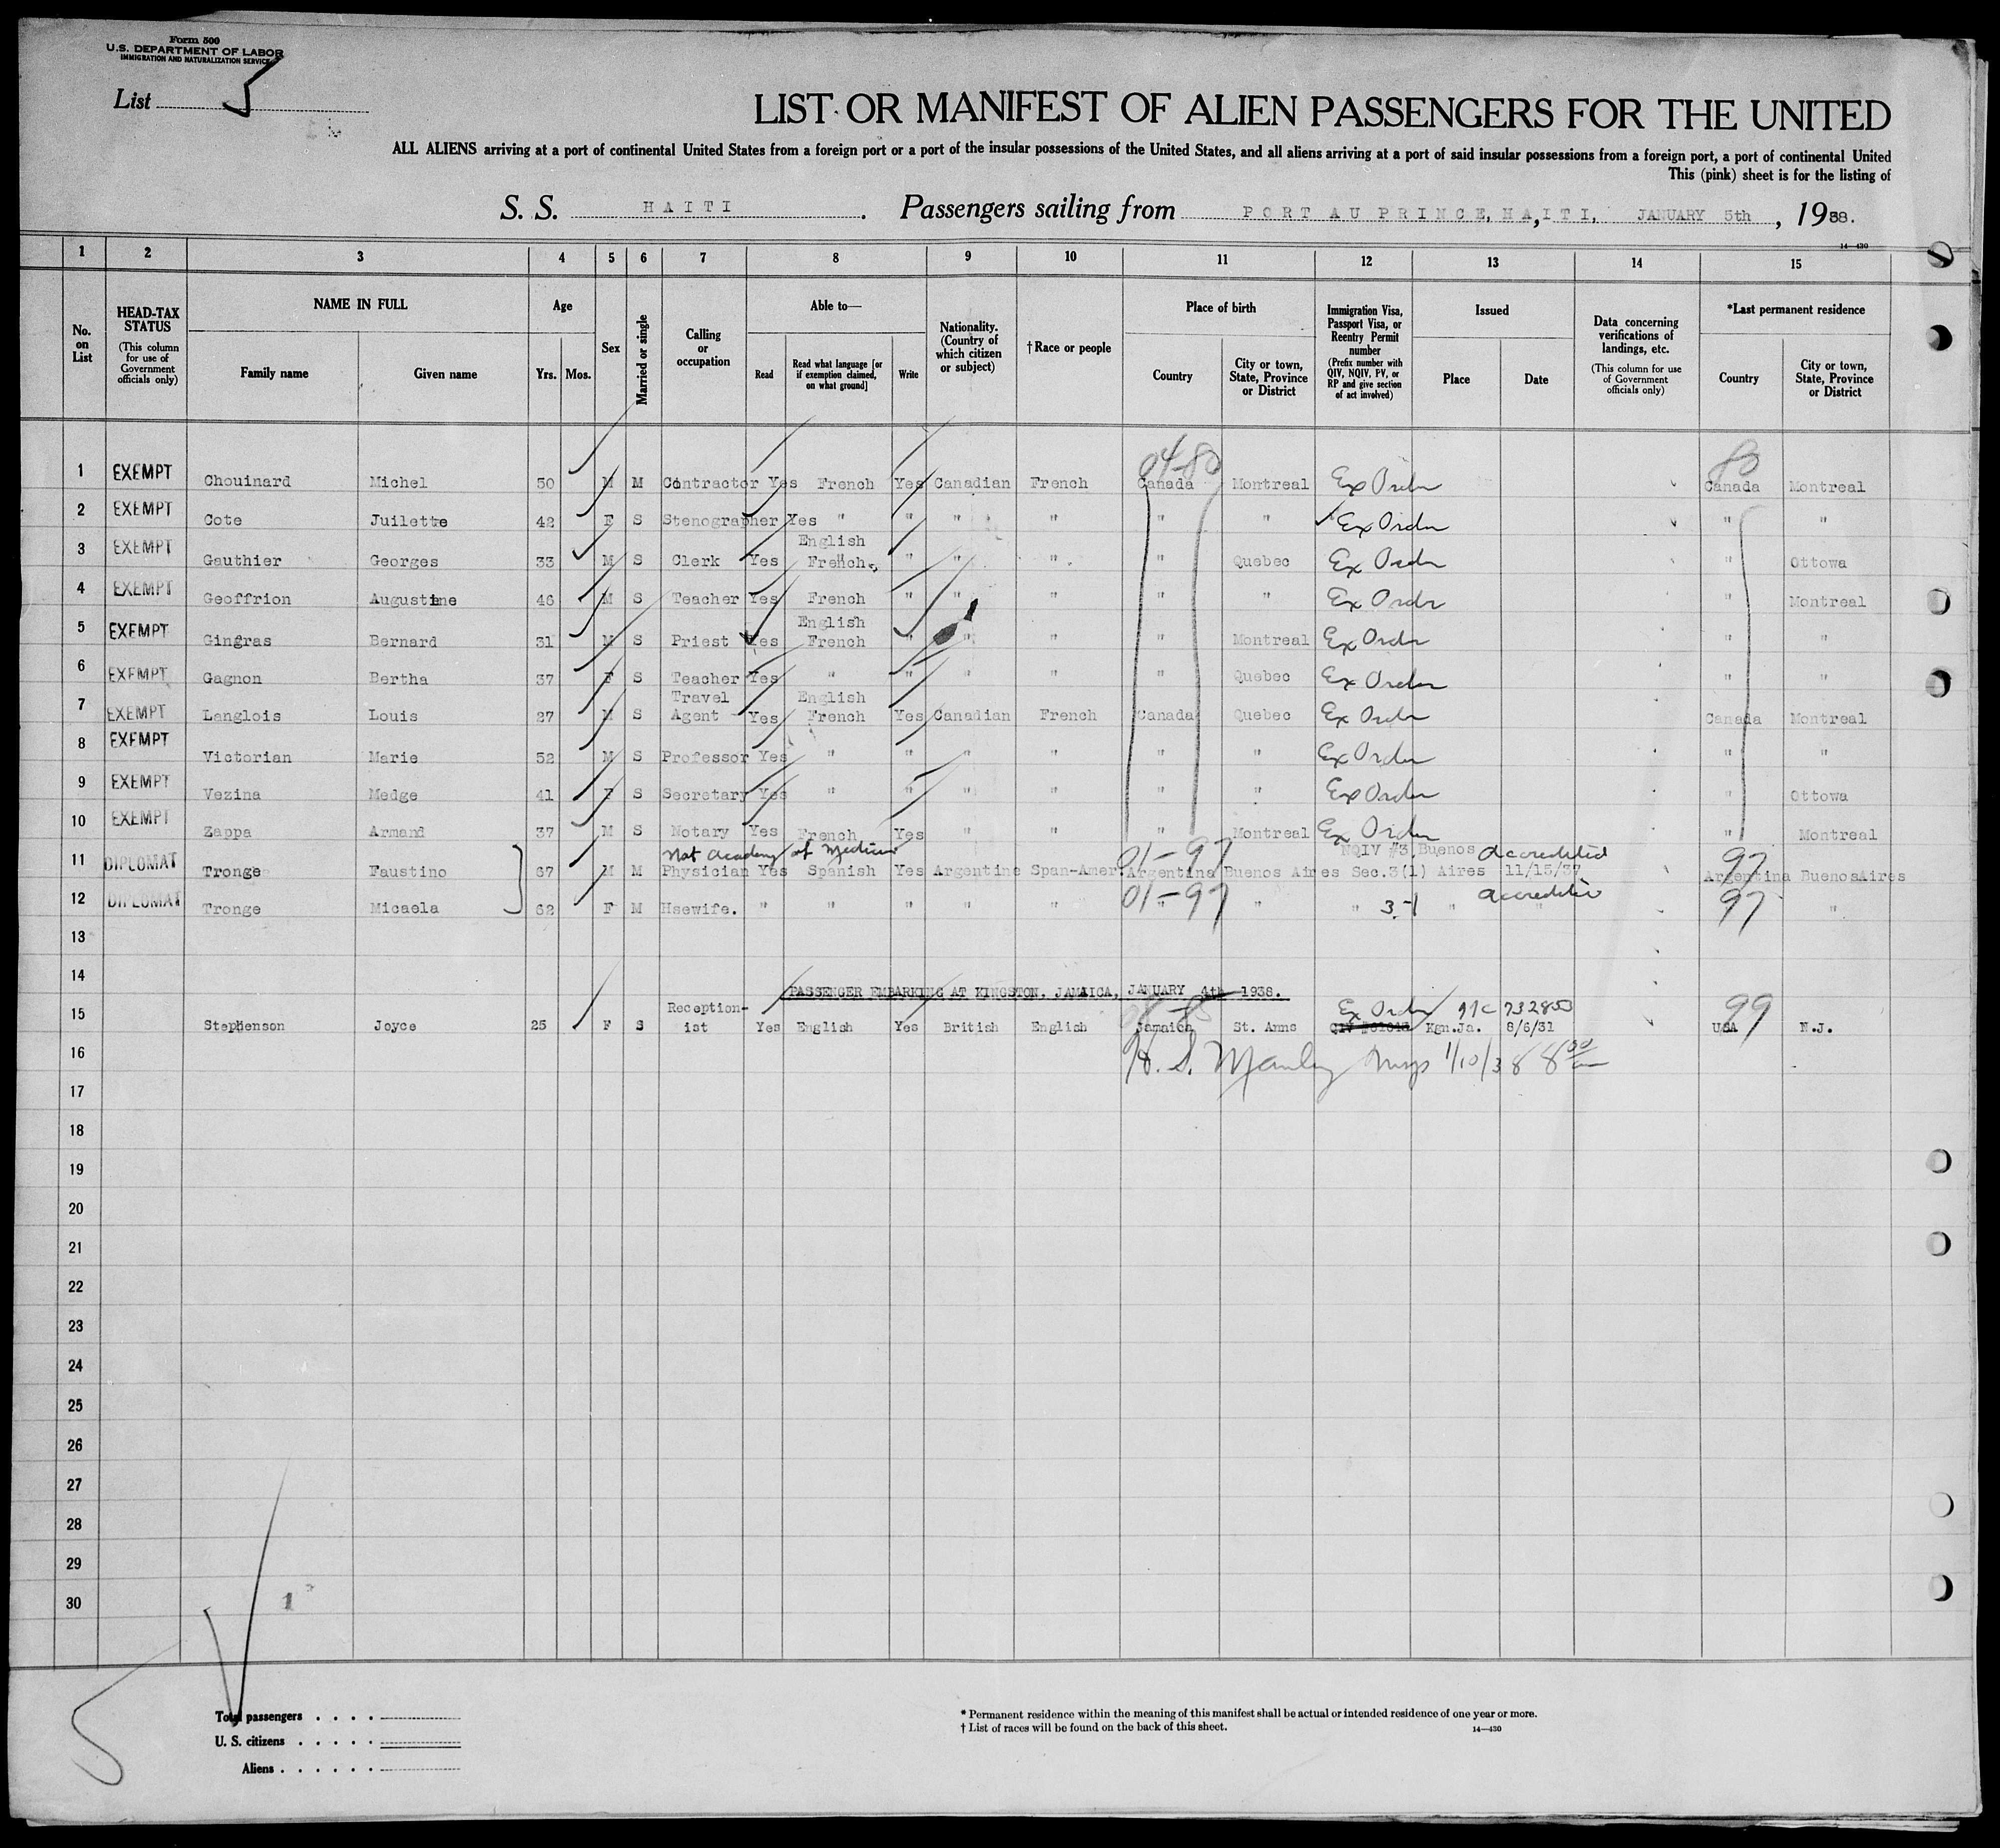 Form 500
U.S. DEPARTMENT OF LABOR
IMMIGRATION AND NATURALIZATION SERVICE
List 5
LIST OR MANIFEST OF ALIEN PASSENGERS FOR THE UNITED
ALL ALIENS arriving at a port of continental United States from a foreign port or a port of the insular possessions of the United States, and all aliens arriving at a port of said insular possessions from a foreign port, a port of continental United
This (pink) sheet is for the listing of
S. S. HAITI. Passengers sailing from PORT AU PRINCE, HAITI, JANUARY 5th, 1938.
14—430
1 2 3 4 5 6 7 8 9 10 11 12 13 14 15
No. on List
HEAD-TAX STATUS (This column for use of Government officials only)
NAME IN FULL
Family name Given name
Age
Yrs. Mos.
Sex
Married or single
Calling or occupation
Able to—
Read Read what language [or if exemption claimed, on what ground] Write
Nationality. (Country of which citizen or subject)
†Race or people
Place of birth
Country City or town, State, Province or District
Immigration Visa, Passport Visa, or Reentry Permit number (Prefix number with QIV, NQIV, PV, or RP and give section of act involved)
Issued
Place Date
Data concerning verifications of landings, etc. (This column for use of Government officials only)
*Last permanent residence
Country City or town, State, Province or District
04-80 80
1 EXEMPT Chouinard Michel 50 M M Contractor Yes French Yes Canadian French Canada Montreal Ex Order Canada Montreal
2 EXEMPT Cote Juilette 42 F S Stenographer Yes " " " " " " Ex Order " "
3 EXEMPT Gauthier Georges 33 M S Clerk Yes English French " " " " Quebec Ex Order " Ottowa
4 EXEMPT Geoffrion Augustine 46 M S Teacher Yes French " " " " " Ex Order " Montreal
5 EXEMPT Gingras Bernard 31 M S Priest Yes English French " " " " Montreal Ex Order " "
6 EXEMPT Gagnon Bertha 37 F S Teacher Yes " " " " " Quebec Ex Order " "
7 EXEMPT Langlois Louis 27 M S Travel Agent Yes English French Yes Canadian French Canada Quebec Ex Order Canada Montreal
8 EXEMPT Victorian Marie 52 M S Professor Yes " " " " " " Ex Order " "
9 EXEMPT Vezina Medge 41 F S Secretary Yes " " " " " " Ex Order " Ottowa
10 EXEMPT Zappa Armand 37 M S Notary Yes French Yes " " " Montreal Ex Order " Montreal
Nat Academy of Medicine 01-97 NQIV #3 Buenos accredited 97
11 DIPLOMAT Tronge Faustino 67 M M Physician Yes Spanish Yes Argentine Span-Amer. Argentina Buenos Aires Sec.3(1) Aires 11/15/37 Argentina BuenosAires
01-97 accredited 97
12 DIPLOMAT Tronge Micaela 62 F M Hsewife. " " " " " " " " 3-1 " " "
13
14
PASSENGER EMBARKING AT KINGSTON, JAMAICA, JANUARY 4th 1938.
Ex Order 732853 99
15 Stephenson Joyce 25 F S Reception-ist Yes English Yes British English Jamaica St. Anns QIV Kgn.Ja. 8/6/31 USA N.J.
16 H. S. Manley Insp 1/10/38 8 00
17
18
19
20
21
22
23
24
25
26
27
28
29
30
1
Total passengers
U. S. citizens
Aliens
* Permanent residence within the meaning of this manifest shall be actual or intended residence of one year or more.
† List of races will be found on the back of this sheet.
14—430